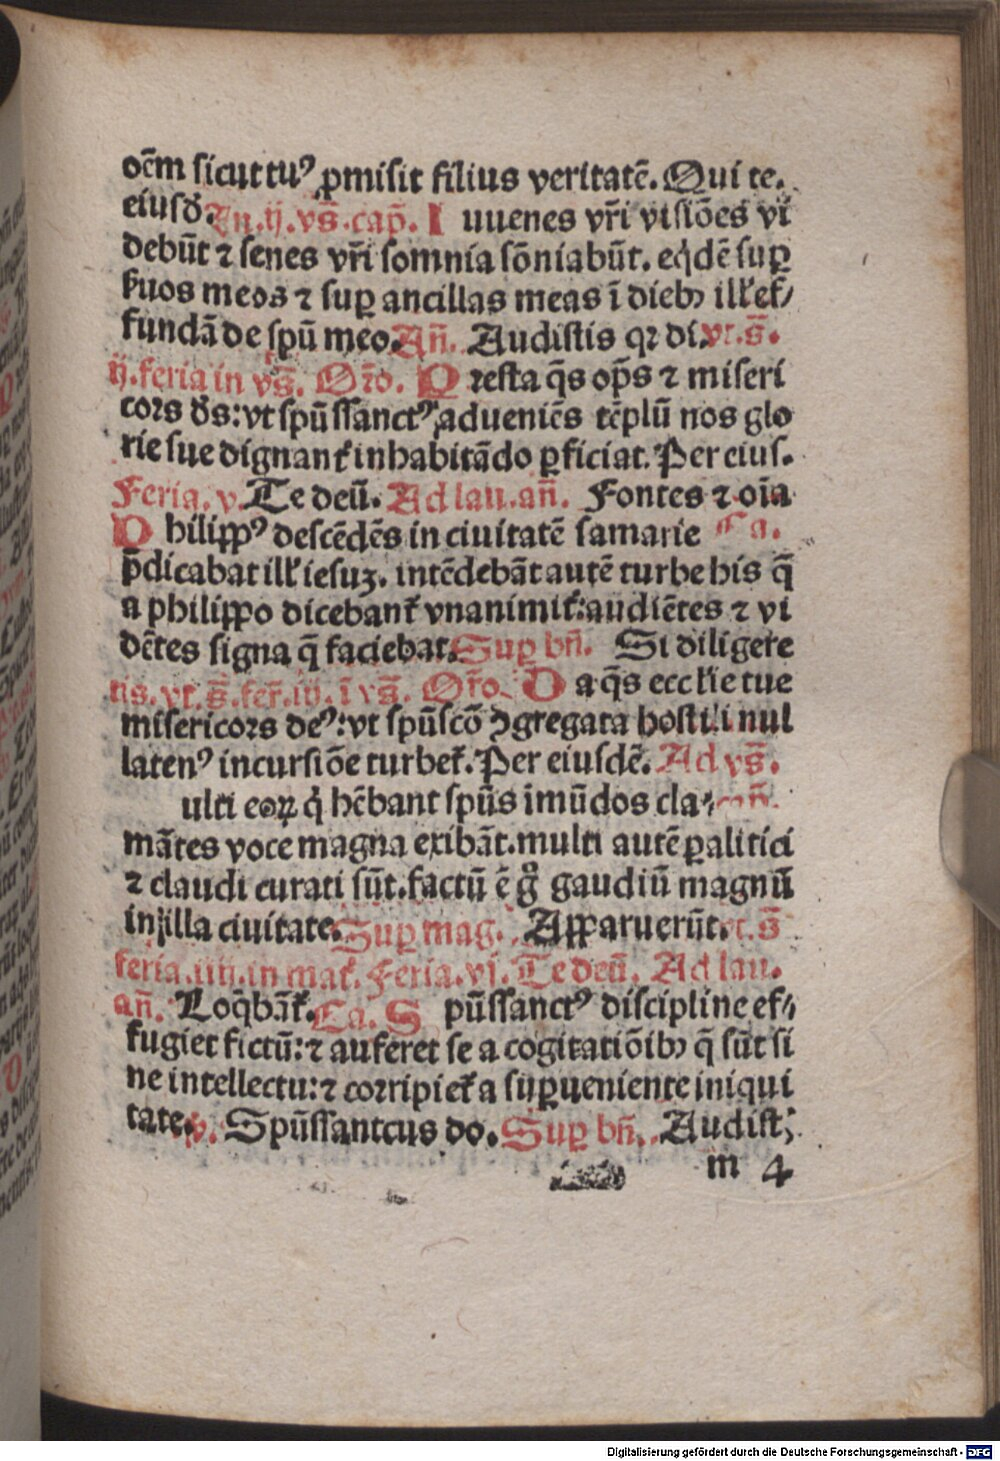 oēm sicut tuꝰ ꝓmisit filius veritatē. Qui te.
eiusđ. In .ij. vs̄. cap̄. I uuenes vr̄i visiōes vi
debūt ⁊ senes vr̄i somnia sōniabūt. eq̇dē suꝑ
ẜuos meos ⁊ suꝑ ancillas meas ī diebꝫ illł ef⸗
fundā de spū meo. An̄. Audistis qꝛ di. vt. s̄.
ij. feria in vs̄. Or̄o. P resta q̄s op̄s ⁊ miseri
cors đs: vt spūssanctꝰ adueniēs tēplū nos glo
rie sue dignant᷑ inhabitādo ꝑficiat. Per eius.
Feria. v. Te deū. Ad lau. an̄. Fontes ⁊ oīa
P hilippꝰ descēdēs in ciuitatē samarie Ca.
p̄dicabat illł iesuꝫ. intēdebāt autē turbe his q̄
a philippo dicebant᷑ vnanimit᷑: audiētes ⁊ vi
dētes signa q̄ faciebat. Suꝑ bn̄. Si diligere
tis. vt. s̄. fer̄. iij. ī vs̄. Or̄o. D a q̄s eccl̄ie tue
misericors deꝰ: vt spūscō ꝯgregata hostili nul
latenꝰ incursiōe turbet᷑. Per eiusdē. Ad vs̄.
ulti eoꝝ q̇ hēbant spūs imūdos cla⸗ an̄.
mātes voce magna exibāt. multi autē ꝑalitici
⁊ claudi curati sūt. factū ē gͦ gaudiū magnū
in illa ciuitate. Suꝑ mag. Apparuerūt. vt. s̄
feria. iiij. in mat᷑. Feria. vj. Te deū. Ad lau.
an̄. Loq̄bāt᷑. Ca. S pūssanctꝰ discipline ef⸗
fugiet fictū: ⁊ auferet se a cogitatiōibꝫ q̄ sūt si
ne intellectu: ⁊ corripiet᷑ a suꝑueniente iniqui
tate. v. Spūssantcus do. Suꝑ bn̄. Audist;
m 4
Digitalisierung gefördert durch die Deutsche Forschungsgemeinschaft - DFG